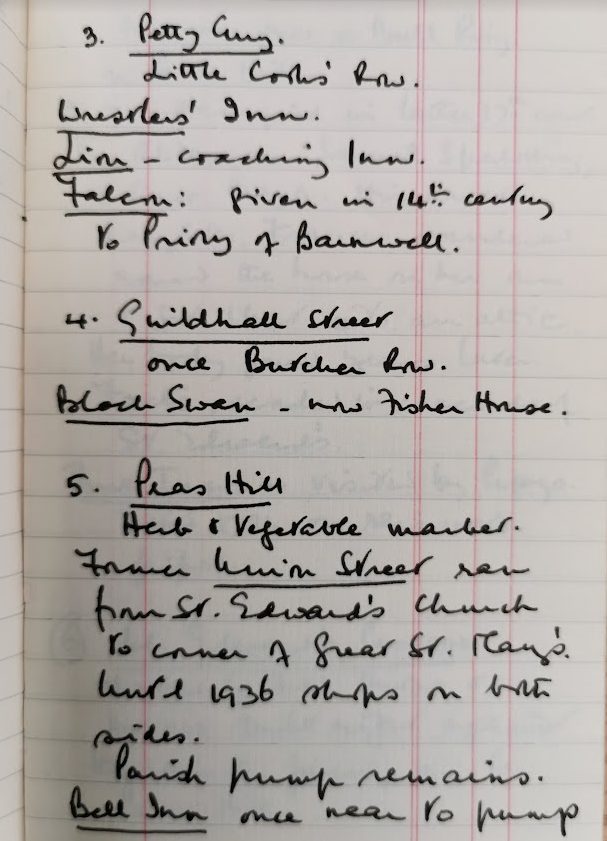 3. Petty Cury.
Little Cooks' Row.
Wrestlers' Inn.
Lion - coaching Inn.
Falcon: given in 14th century
to Priory of Barnwell.
4. Guildhall Street
once Butcher Row.
Black Swan - now Fisher House.
5. Peas Hill
Herb & Vegetable market.
Former Union Street ran
from St. Edward's Church
to corner of Great St. Mary's.
Until 1936 shops on both
sides.
Parish pump remains.
Bell Inn once near to pump